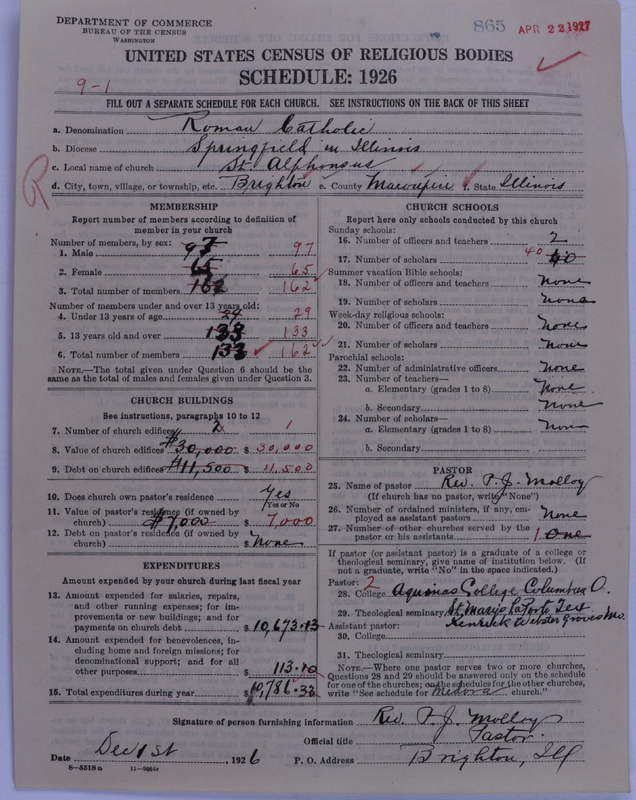 DEPARTMENT OF COMMERCE
BUREAU OF THE CENSUS
WASHINGTON
865
APR 22 1927
UNITED STATES CENSUS OF RELIGIOUS BODIES
SCHEDULE: 1926
9-1
FILL OUT A SEPARATE SCHEDULE FOR EACH CHURCH. SEE INSTRUCTIONS ON THE BACK OF THIS SHEET
a. Denomination Roman Catholic
b. Diocese Springfield in Illinois
c. Local name of church St. Alphonsus
d. City, town, village, or township, etc. Brighton e. County Macoupin f. State Illinois
R
MEMBERSHIP
Report number of members according to definition of member in your church
Number of members, by sex:
1. Male 97 97
2. Female 65 65
3. Total number of members 162 162
Number of members under and over 13 years old:
4. Under 13 years of age 29 29
5. 13 years old and over 133 133
6. Total number of members 133 162
NOTE.—The total given under Question 6 should be same as the total of males and females given under Question 3.
CHURCH BUILDINGS
See instructions, paragraphs 10 to 12
7. Number of church edifices 2 1
8. Value of church edifices $30,000 $ 30,000
9. Debt on church edifices $11,500 $ 11,500
10. Does church own pastor's residence Yes
Yes or No
11. Value of pastor's residence (if owned by church) $7,000 $ 7,000
12. Debt on pastor's residence (if owned by church) $ None
EXPENDITURES
Amount expended by your church during last fiscal year
13. Amount expended for salaries, repairs, and other running expenses; for improvements or new buildings; and for payments on church debt $ 10,673.13
14. Amount expended for benevolences, including home and foreign missions; for denominational support; and for all other purposes $ 113.20
15. Total expenditures during year $ 10,786.33
CHURCH SCHOOLS
Report here only schools conducted by this church
Sunday schools:
16. Number of officers and teachers 2
17. Number of scholars 40 40
Summer vacation Bible schools:
18. Number of officers and teachers None
19. Number of scholars None
Week-day religious schools:
20. Number of officers and teachers None
21. Number of scholars None
Parochial schools:
22. Number of administrative officers None
23. Number of teachers—
a. Elementary (grades 1 to 8) None
b. Secondary None
24. Number of scholars—
a. Elementary (grades 1 to 8) None
b. Secondary
PASTOR
25. Name of pastor Rev. P. J. Molloy
(If church has no pastor, write "None")
26. Number of ordained ministers, if any, employed as assistant pastors None
27. Number of other churches served by the pastor or his assistants 1 One
If pastor (or assistant pastor) is a graduate of a college or theological seminary, give name of institution below. (If not a graduate, write "No" in the space indicated.)
Pastor: 2
28. College Aquinas College Columbus O.
29. Theological seminary St. Marys LaPorte Tex
Assistant pastor: Kenrick Webster Groves Mo.
30. College
31. Theological seminary
NOTE.—Where one pastor serves two or more churches, Questions 28 and 29 should be answered only on the schedule for one of the churches; on the schedules for the other churches, write "See schedule for Medora church."
Signature of person furnishing information Rev. P. J. Molloy
Official title Pastor
Date Dec 1st, 1926 P. O. Address Brighton, Ill
8-5518 a